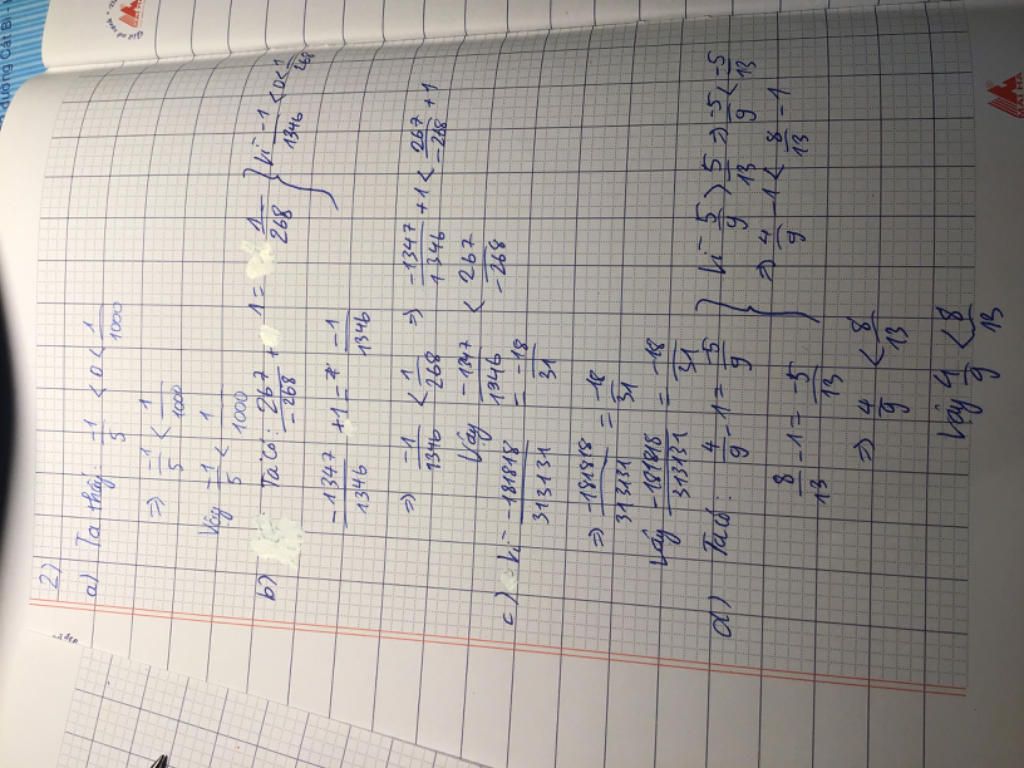 2)
a) Ta thấy: -1/5 < 0 < 1/1000
=> -1/5 < 1/1000
Vậy -1/5 < 1/1000
b) Ta có: 267/-268 + 1 = 1/268 } Vì -1/1346 < 0 < 1/268
-1347/1346 + 1 = -1/1346
=> -1/1346 < 1/268 => -1347/1346 + 1 < 267/-268 + 1
Vậy -1347/1346 < 267/-268
c) Vì -181818/313131 = -18/31
=> -181818/313131 = -18/31
Vậy -181818/313131 = -18/31
d) Ta có: 4/9 - 1 = -5/9 } Vì 5/9 > 5/13 => -5/9 < -5/13
8/13 - 1 = -5/13 => 4/9 - 1 < 8/13 - 1
=> 4/9 < 8/13
Vậy 4/9 < 8/13